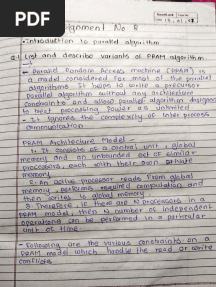 PDF
Assignment No. 8
• Introduction to parallel algorithm
Q1 List and describe variants of PRAM algorithm
→ Parallel Random Access machine (PRAM) is
a model considered for most of the parallel
algorithms. It helps to write a precursor
parallel algorithm without any architecture
constraints and allows parallel algorithm designers
to treat processing power as unlimited
• It ignores the complexity of inter process
communication
PRAM Architecture Model
1. It consists of a control unit, global
memory and an unbounded set of similar
processors, each with their own private
memory.
2. An active processor reads from global
memory, performs required computation and
then writes to global memory
3. Therefore, if there are N processors in a
PRAM model, then N number of independent
operations can be performed in a particular
unit of time.
- Following are the various constraints on a
PRAM model which handle the read or write
conflicts